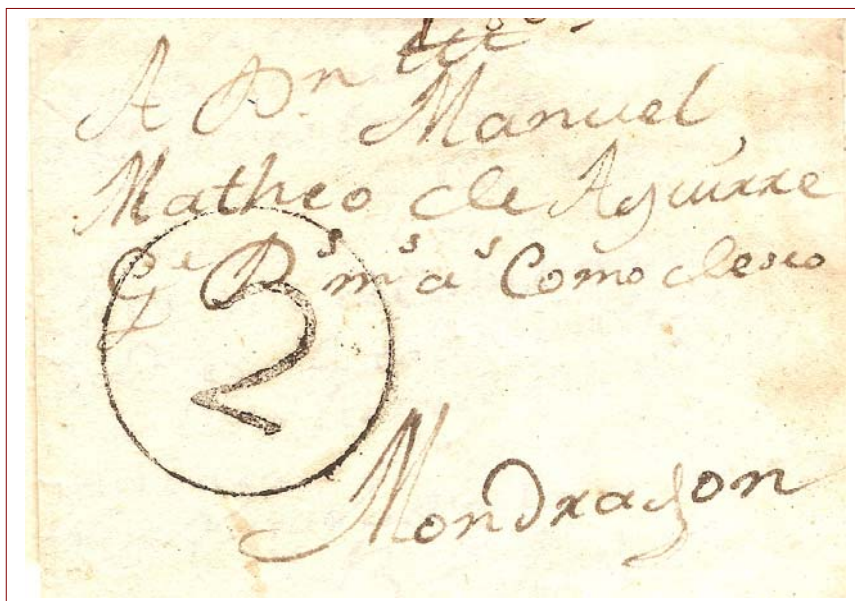 A Dn Manuel
Matheo de Aguirre
Ge Ds ms as Como deseo
2
Mondragon